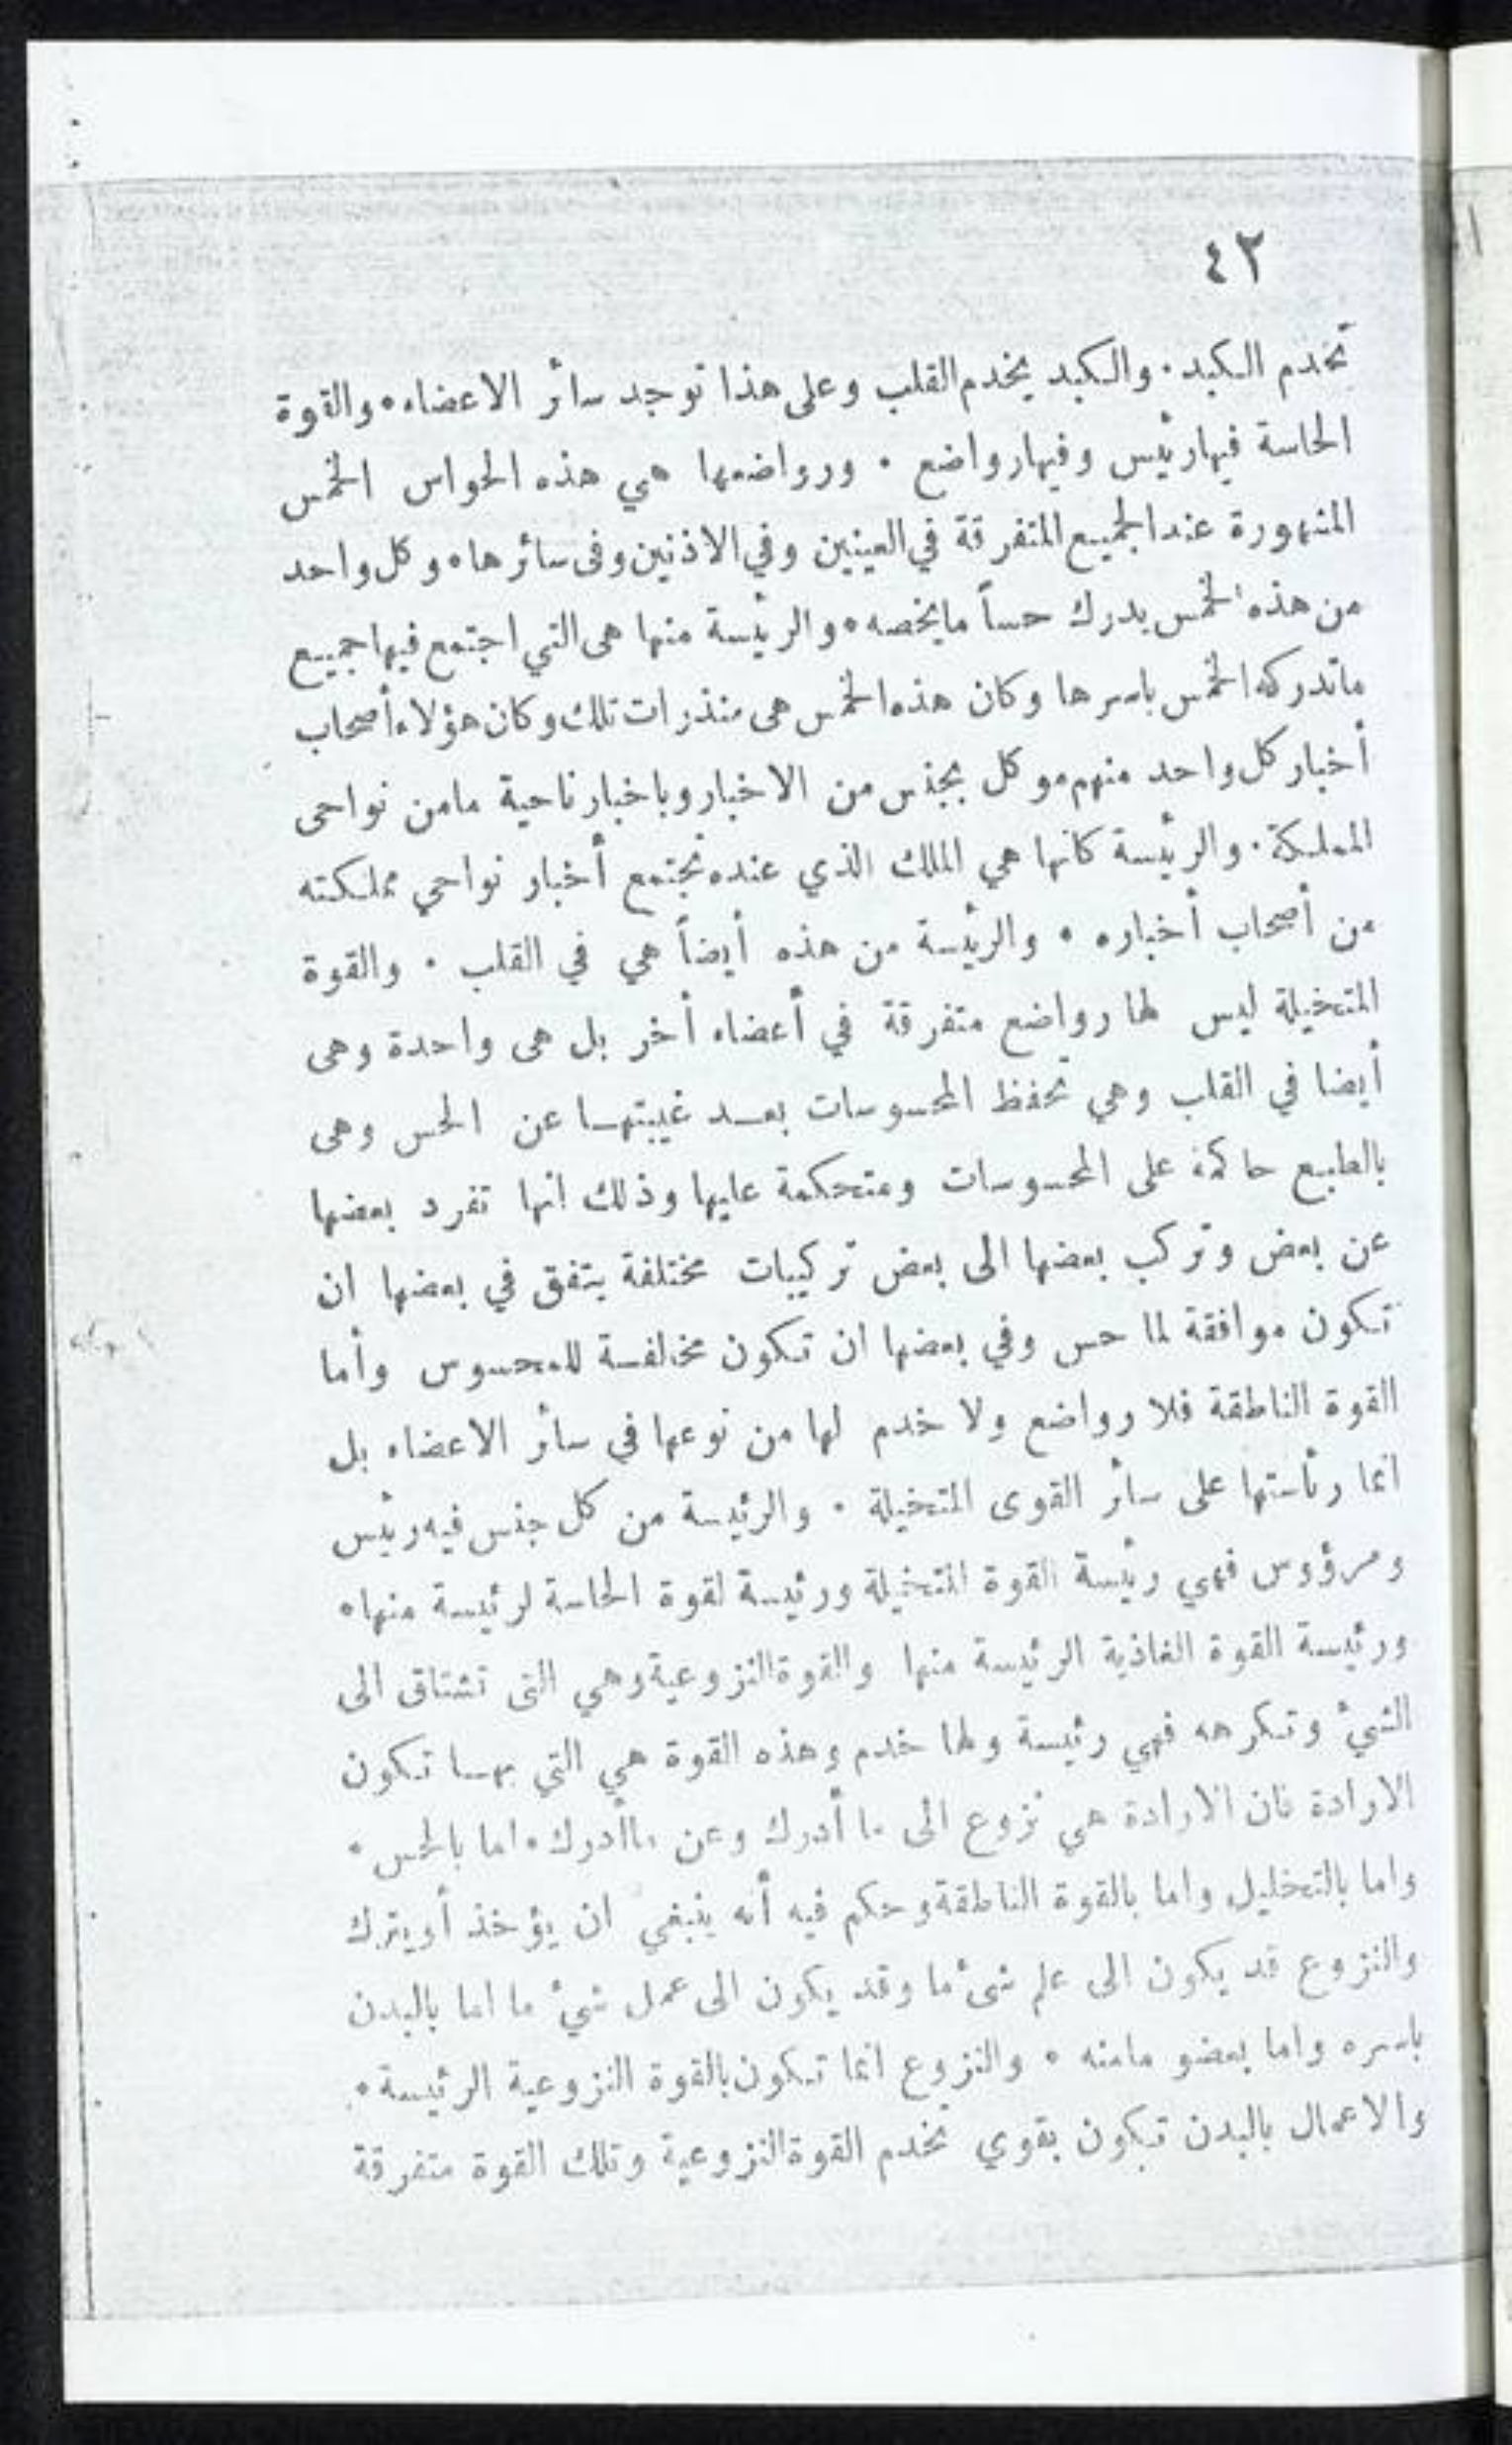 ٤٢
تخدم الكبد. والكبد يخدم القلب وعلى هذا توجد سائر الاعضاء. والقوة
الحاسة فيها رئيس وفيها رواضع. ورواضعها هي هذه الحواس الخمس
المشهورة عند الجميع المتفرقة في العينين وفي الاذنين وفى سائرها. وكل واحد
من هذه الخمس يدرك حساً ما يخصه. والرئيسة منها هى التي اجتمع فيها جميع
ما تدركه الخمس باسرها وكان هذه الخمس هى منذرات تلك وكان هؤلاء أصحاب
أخبار كل واحد منهم موكل بجنس من الاخبار وباخبار ناحية ما من نواحى
المملكة. والرئيسة كانها هي الملك الذي عنده تجتمع أخبار نواحي مملكته
من أصحاب أخباره. والرئيسة من هذه أيضاً هي في القلب. والقوة
المتخيلة ليس لها رواضع متفرقة في أعضاء أخر بل هى واحدة وهى
أيضا في القلب وهي تحفظ المحسوسات بعد غيبتها عن الحس وهى
بالطبع حاكمة على المحسوسات ومتحكمة عليها وذلك انها تفرد بعضها
عن بعض وتركب بعضها الى بعض تركيبات مختلفة يتفق في بعضها ان
تكون موافقة لما حس وفي بعضها ان تكون مخالفة للمحسوس وأما
القوة الناطقة فلا رواضع ولا خدم لها من نوعها في سائر الاعضاء بل
انما رئاستها على سائر القوى المتخيلة. والرئيسة من كل جنس فيه رئيس
ومرؤوس فهي رئيسة القوة المتخيلة ورئيسة لقوة الحاسة لرئيسة منها.
ورئيسة القوة الغاذية الرئيسة منها والقوة النزوعية وهي التى تشتاق الى
الشيء وتكرهه فهي رئيسة ولها خدم وهذه القوة هي التي بها تكون
الارادة فان الارادة هي نزوع الى ما أدرك وعن ما أدرك. اما بالحس.
واما بالتخليل واما بالقوة الناطقة وحكم فيه أنه ينبغي ان يؤخذ أو يترك
والنزوع قد يكون الى علم شىء ما وقد يكون الى عمل شيء ما اما بالبدن
باسره واما بعضو ما منه. والنزوع انما تكون بالقوة النزوعية الرئيسة.
والاعمال بالبدن تكون بقوي تخدم القوة النزوعية وتلك القوة متفرقة